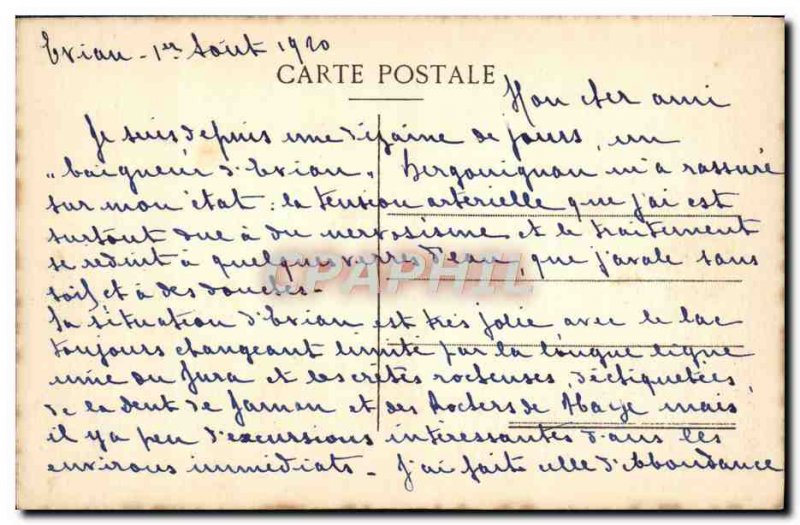 Evian - 1er Août 1920
CARTE POSTALE
Mon cher ami
Je suis depuis une dizaine de jours, un
"baigneur d'Evian". Bergouignan m'a rassuré
sur mon état : la tension artérielle que j'ai est
surtout due à du nervosisme et le traitement
se réduit à quelques verres d'eau, que j'avale sans
soif et à des douches -
La situation d'Evian est très jolie avec le lac
toujours changeant limité par la longue ligne
unie du Jura et les crêtes rocheuses, déchiquetées,
de la dent de Jaman et des Rochers de Naye mais
il y a peu d'excursions intéressantes dans les
environs immédiats - J'ai faite celle d'Abondance
CPAPHIL